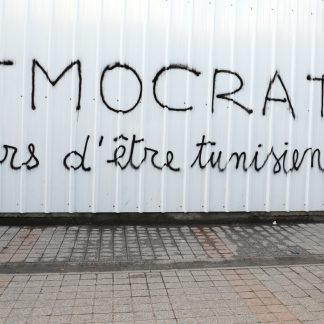 EMOCRAT
rs d'être tunisien